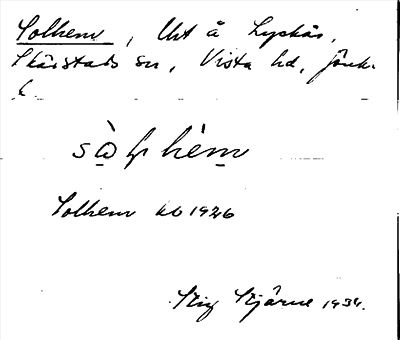 Solhem, Uvt å Lyckås,
Skärstads sn, Vista hd, Jönk.
l.
sò̱lhè̱m
Solhem kb 1926
Stig Stjärne 1934.